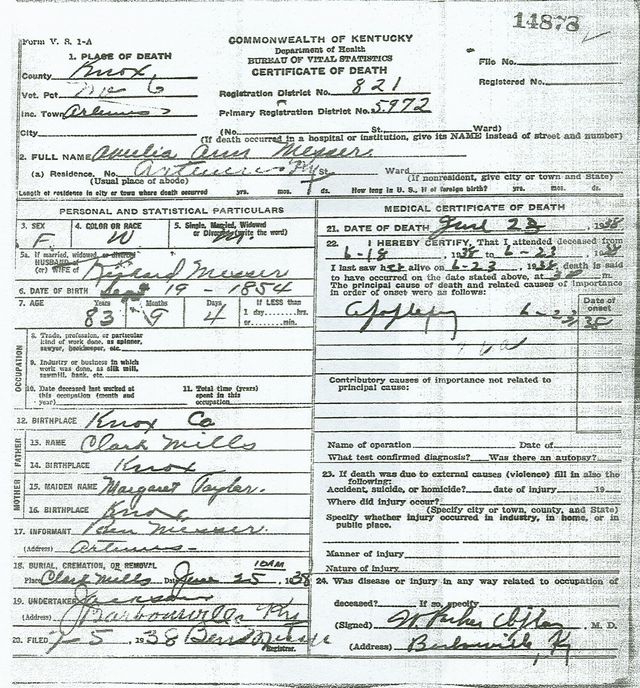 14878
Form V. S. 1-A
COMMONWEALTH OF KENTUCKY
Department of Health
BUREAU OF VITAL STATISTICS
CERTIFICATE OF DEATH
1. PLACE OF DEATH
County Knox
Vot. Pct 6
Inc. Town Artemus
City
Registration District No. 821
Primary Registration District No. 5972
File No.
Registered No.
(No. St. Ward)
(If death occurred in a hospital or institution, give its NAME instead of street and number)
2. FULL NAME Amelia Ann Messer
(a) Residence. No. Artemus Ky St. Ward
(Usual place of abode) (If nonresident, give city or town and State)
Length of residence in city or town where death occurred yrs. mos. ds. How long in U. S., if of foreign birth? yrs. mos. ds.
PERSONAL AND STATISTICAL PARTICULARS
3. SEX F
4. COLOR OR RACE W
5. Single, Married, Widowed or Divorced (write the word) M.
5a. If married, widowed, or divorced
HUSBAND of
(or) WIFE of Richard Messer
6. DATE OF BIRTH Sept 19 - 1854
7. AGE Years 83 Months 9 Days 4 If LESS than 1 day, hrs. or min.
OCCUPATION
8. Trade, profession, or particular kind of work done, as spinner, sawyer, bookkeeper, etc.
9. Industry or business in which work was done, as silk mill, sawmill, bank, etc.
10. Date deceased last worked at this occupation (month and year)
11. Total time (years) spent in this occupation
12. BIRTHPLACE Knox Co
FATHER
13. NAME Clark Mills
14. BIRTHPLACE Knox
MOTHER
15. MAIDEN NAME Margaret Taylor.
16. BIRTHPLACE Knox
17. INFORMANT Messer
(Address) Artemus -
18. BURIAL, CREMATION, OR REMOVAL 10AM
Place Clark Mills Date June 25, 1938
19. UNDERTAKER Jackson
(Address) Barbourville Ky
20. FILED 7-5, 1938 Messer
Registrar.
MEDICAL CERTIFICATE OF DEATH
21. DATE OF DEATH June 23 1938
22. I HEREBY CERTIFY, That I attended deceased from
6-18, 1938 to 6-23, 1938
I last saw her alive on 6-23, 1938, death is said
to have occurred on the date stated above, at m.
The principal cause of death and related causes of importance in order of onset were as follows:
Date of onset
Apoplexy 6-23 38
Contributory causes of importance not related to principal cause:
Name of operation Date of
What test confirmed diagnosis? Was there an autopsy?
23. If death was due to external causes (violence) fill in also the following:
Accident, suicide, or homicide? date of injury 19
Where did injury occur?
(Specify city or town, county, and State)
Specify whether injury occurred in industry, in home, or in public place.
Manner of injury
Nature of injury
24. Was disease or injury in any way related to occupation of
deceased? If so, specify
(Signed) M. D.
(Address) Barbourville, Ky